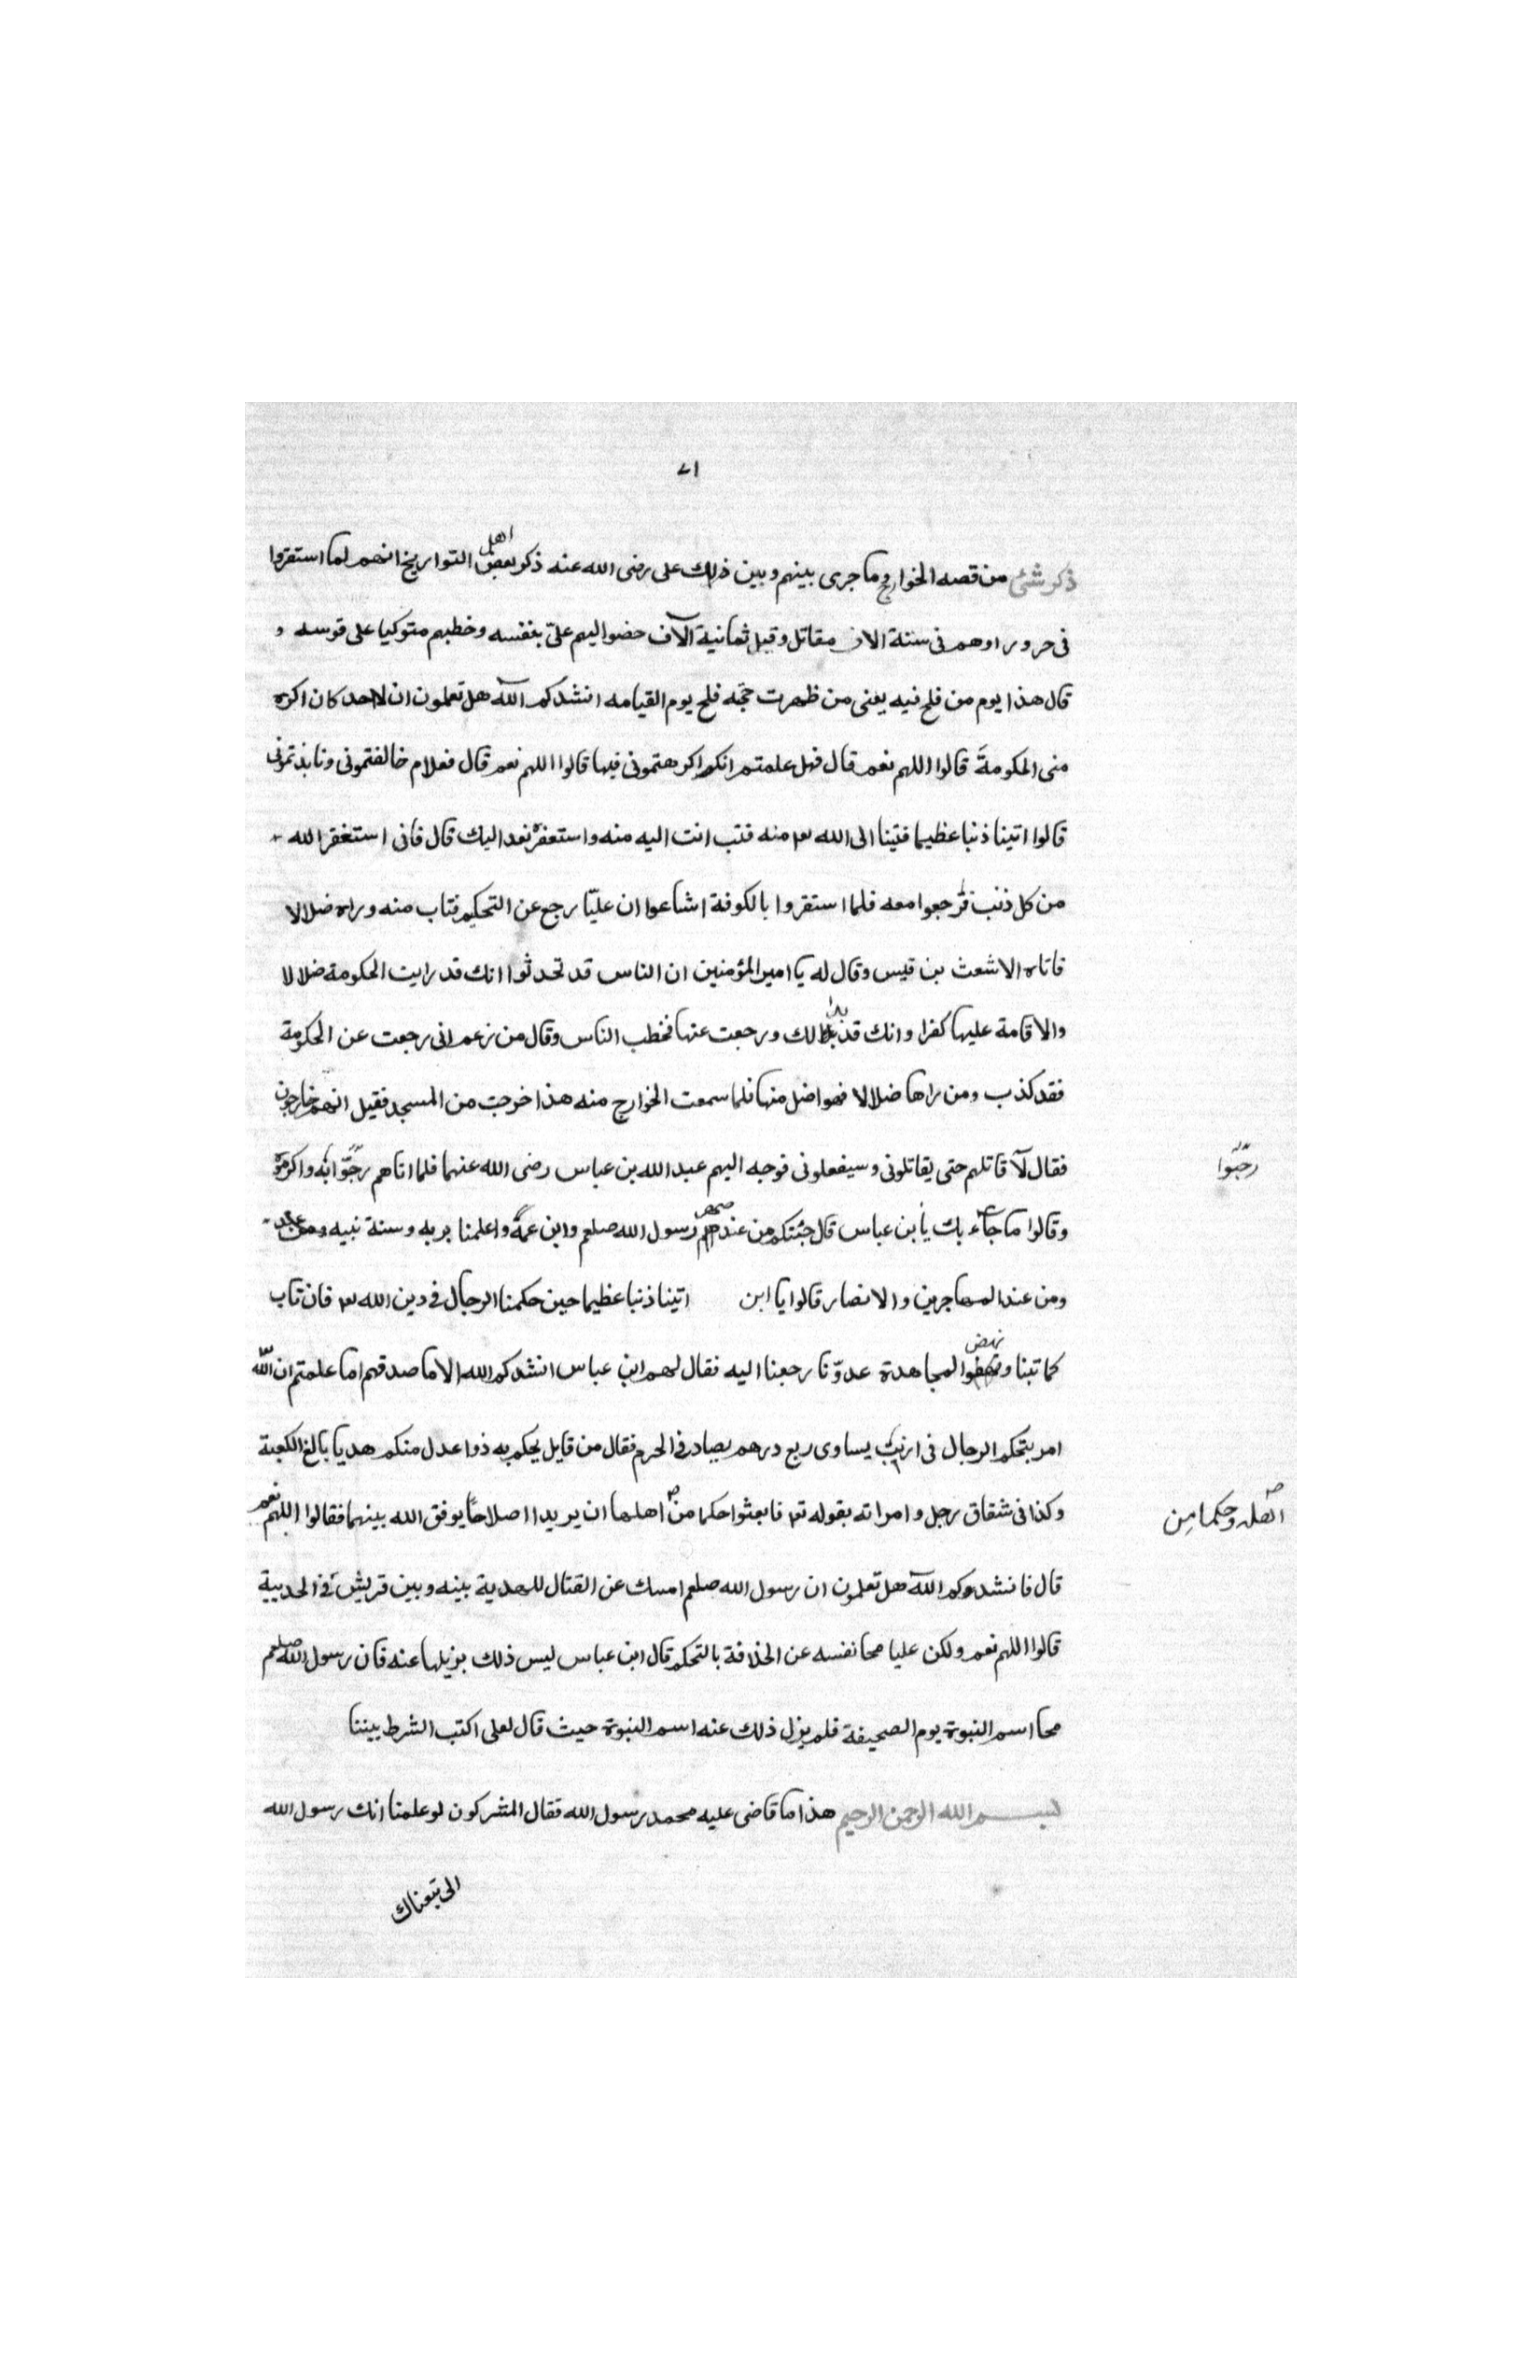 ٧١
ذكر شئ من قصه الخوارج وما جرى بينهم وبين ذلك على رضى الله عنه ذكر بعض اهل التواريخ انهم لما استقروا
فى حروراوهم فى ستة الاف مقاتل وقيل ثمانية آلاف حضوا اليهم علىّ بنفسه وخطبهم متوكيا على قوسه و
قال هذا يوم من فلح فيه يعنى من ظهرت حجّه فلح يوم القيامه انشدكم الله هل تعلمون ان لاحد كان اكره
منى الحكومةَ قالوا اللهم نعم قال فهل علمتم انكم اكرهتمونى فيها قالوا اللهم نعم قال فعلام خالفتمونى ونابذتمونى
قالوا اتينا ذنبا عظيما فتبنا الى الله تع منه فتب انت اليه منه واستغفره نعد اليك قال فانى استغفر الله
من كل ذنب فرجعوا معه فلما استقروا بالكوفة اشاعوا ان عليّا رجع عن التحكيم فتاب منه وراه ضلالا
فاتاه الاشعث بن قيس وقال له يا امير المؤمنين ان الناس قد تحدثوا انك قد رايت الحكومة ضلالا
والاقامة عليها كفرا وانك قد بدا لك ورجعت عنها فخطب الناس وقال من زعم انى رجعت عن الحكومة
فقد كذب ومن راها ضلالا فهو اضل منها فلما سمعت الخوارج منه هذا خرجت من المسجد فقيل انهم خارجون
فقال لآ قاتلهم حتى يقاتلونى وسيفعلونى فوجه اليهم عبد الله بن عباس رضى الله عنهما فلما اتاهم رحّبوا به واكرموه
رحّبوا
وقالوا ما جآء بك يا بن عباس قال جئتكم من عند صهر رسول الله صلعم وابن عمّه واعلمنا بربه وسنة نبيه
ومن عند المهاجرين والانصار قالوا يا ابن اتينا ذنبا عظيما حين حكمنا الرجال فى دين الله تع فان تاب
كما تبنا ونهض لمجاهدة عدوّنا رجعنا اليه فقال لهم ابن عباس انشدكم الله الا ما صدقهم اما علمتم ان الله
امر بتحكم الرجال فى ارنب يساوى ربع درهم يصاد فى الحرم فقال من قايل يحكم به ذوا عدل منكم هديا بالغ الكعبة
وكذا فى شقاق رجل وامراته بقوله تع فابعثوا حكما من اهلها ان يريدا اصلاحًا يوفق الله بينهما فقالوا اللهم نعم
اهله وحكما مِن
قال فانشدوكم الله هل تعلمون ان رسول الله صلعم امسك عن القتال للهدية بينه وبين قريش فى الحديبية
قالوا اللهم نعم ولكن عليا محا نفسه عن الخلافة بالتحكم قال ابن عباس ليس ذلك بزيلها عنه فان رسول الله صلعم
محا اسم النبوة يوم الصحيفة فلم يزل ذلك عنه اسم النبوة حيث قال لعلى اكتب الشرط بيننا
بسم الله الرحمن الرحيم هذا ما قاضى عليه محمد رسول الله فقال المشركون لو علمنا انك رسول الله